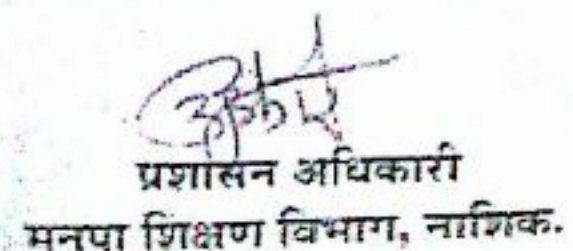 प्रशासन अधिकारी
मनपा शिक्षण विभाग, नाशिक.